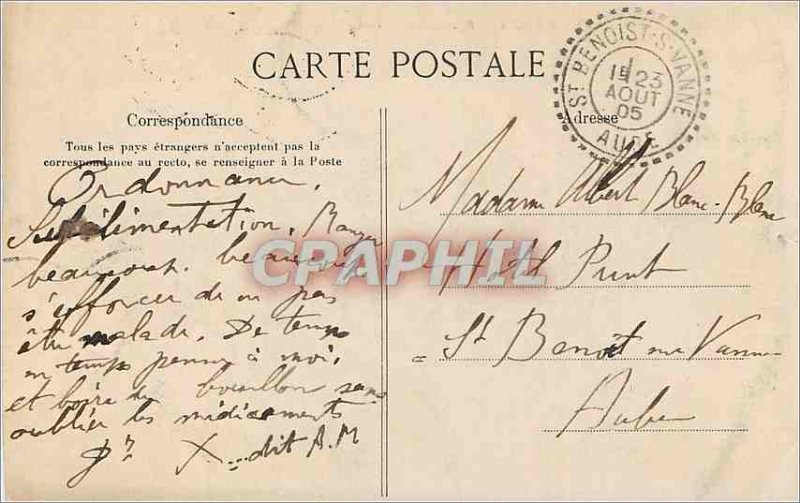 CARTE POSTALE
ST BENOIST-S-VANNE
1E 23
AOUT
05
AUBE
Correspondance
Tous les pays étrangers n'acceptent pas la
correspondance au recto, se renseigner à la Poste
Ordonnance.
Suralimentation. Manger
beaucoup. beaucoup
s'efforcer de ne pas
être malade. De temps
en temps penser à moi.
et boire du bouillon sans
oublier les médicaments
Dr X...dit A.M
Adresse
Madame Albert Blanc-Blanc
Hotel
= St Benoit sur Vanne
Aube
CPAPHIL